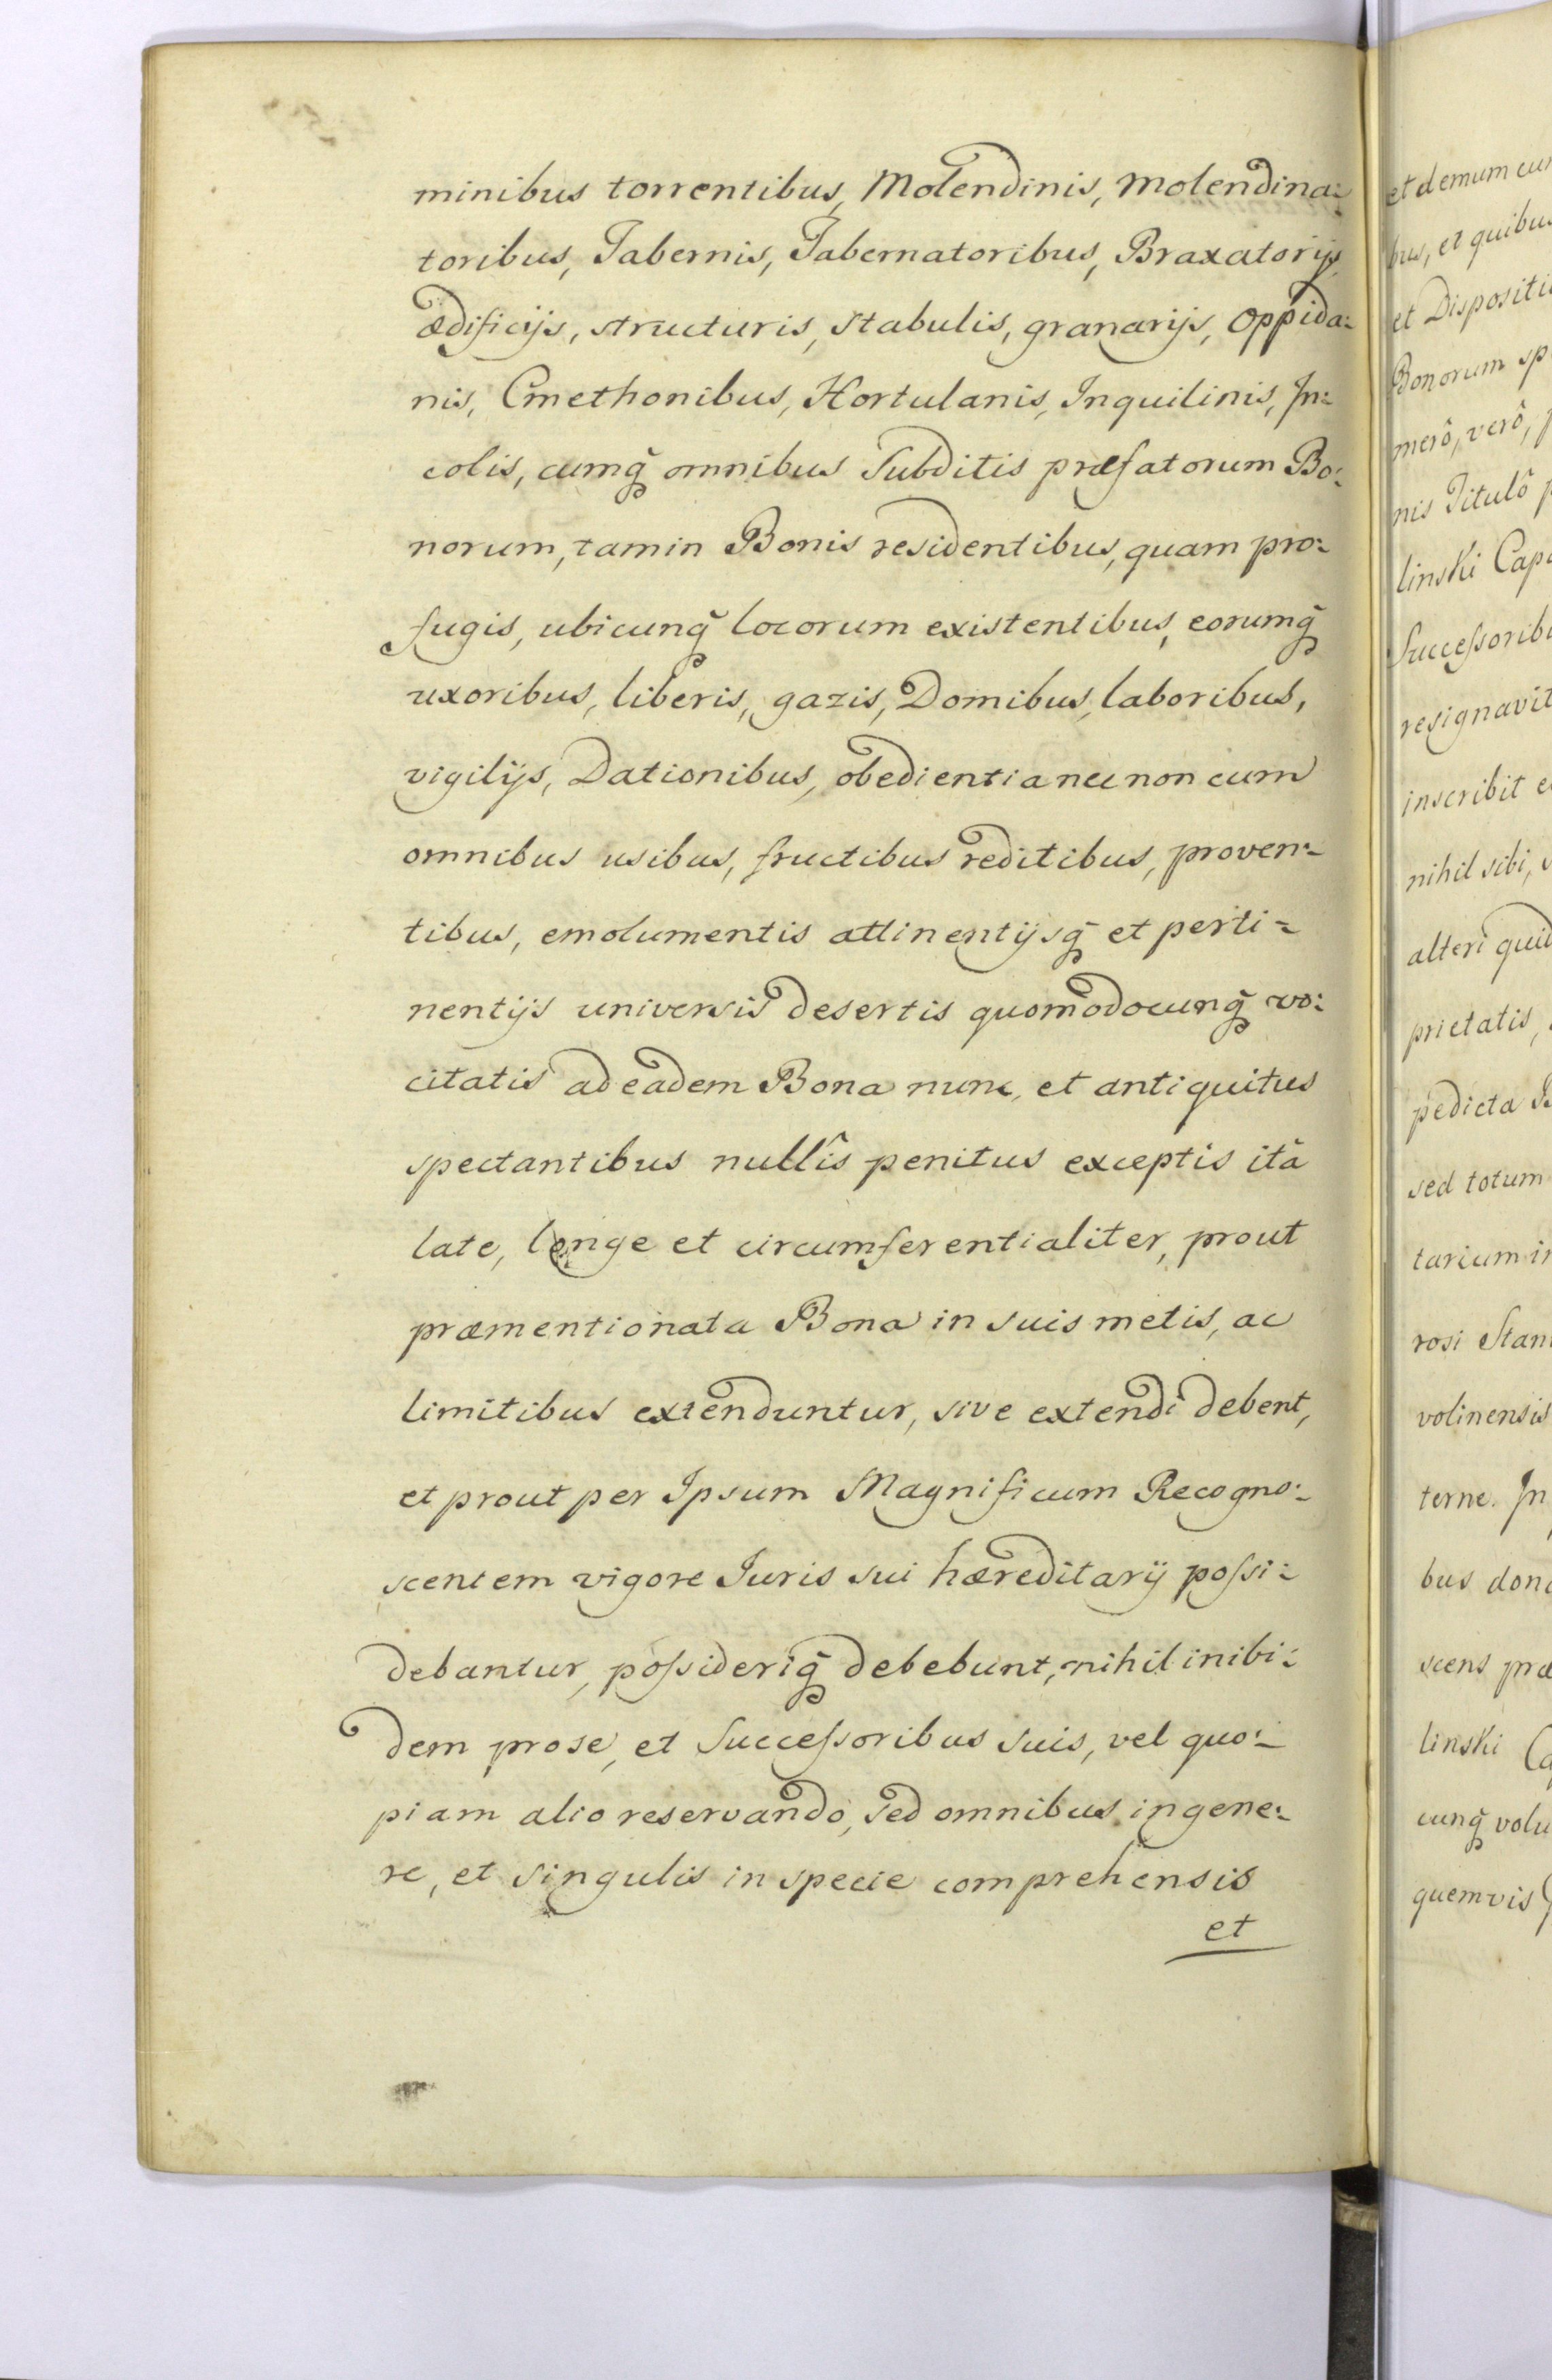 minibus torrentibus, Molendinis, molendina:
toribus, Tabernis, Tabernatoribus, Braxatorijs,
ædificijs, structuris, stabulis, granarijs, Oppida:
nis, Cmethonibus, Hortulanis, Inquilinis, In:
colis, cumq̃ omnibus Subditis præfatorum Bo:
norum, tamin Bonis residentibus, quam pro:
fugis, ubicunq̃ locorum existentibus, eorumq̃
uxoribus, liberis, gazis, Domibus, laboribus,
vigilijs, Dationibus, obedientia nec non cum
omnibus usibus, fructibus reditibus, proven:
tibus, emolumentis attinentijsq̃ et perti:
nentijs universis desertis quomodocunq̃ vo:
citatis ad eadem Bona nunc, et antiquitus
spectantibus nullîs penitus exceptis itâ
late, longe et circumferentialiter, prout
præmentionata Bona in suis metis, ac
limitibus extenduntur, sive extendi debent,
et prout per Ipsum Magnificum Recogno:
scentem vigore Iuris sui hæreditarij poſsi:
debantur, poſsideriq̃ debebunt, nihil inibi:
dem prose, et Succeſsoribus suis, vel quo:
piam alio reservando, sed omnibus ingene:
re, et singulis in specie comprehensis
et
et demum cu
bus, et quibus
et Dispositi
Bonorum sp
merô, verô,
nis Titulô
linski Cap
Succeſsorib
resignavit
inscribit
nihil sibi,
alteri quid
prietatis,
pedicta
sed totum
tarium in
rosi Stan
volinensis
terne. In
bus don
scens præ
linski
cunq̃ volu
quemvis